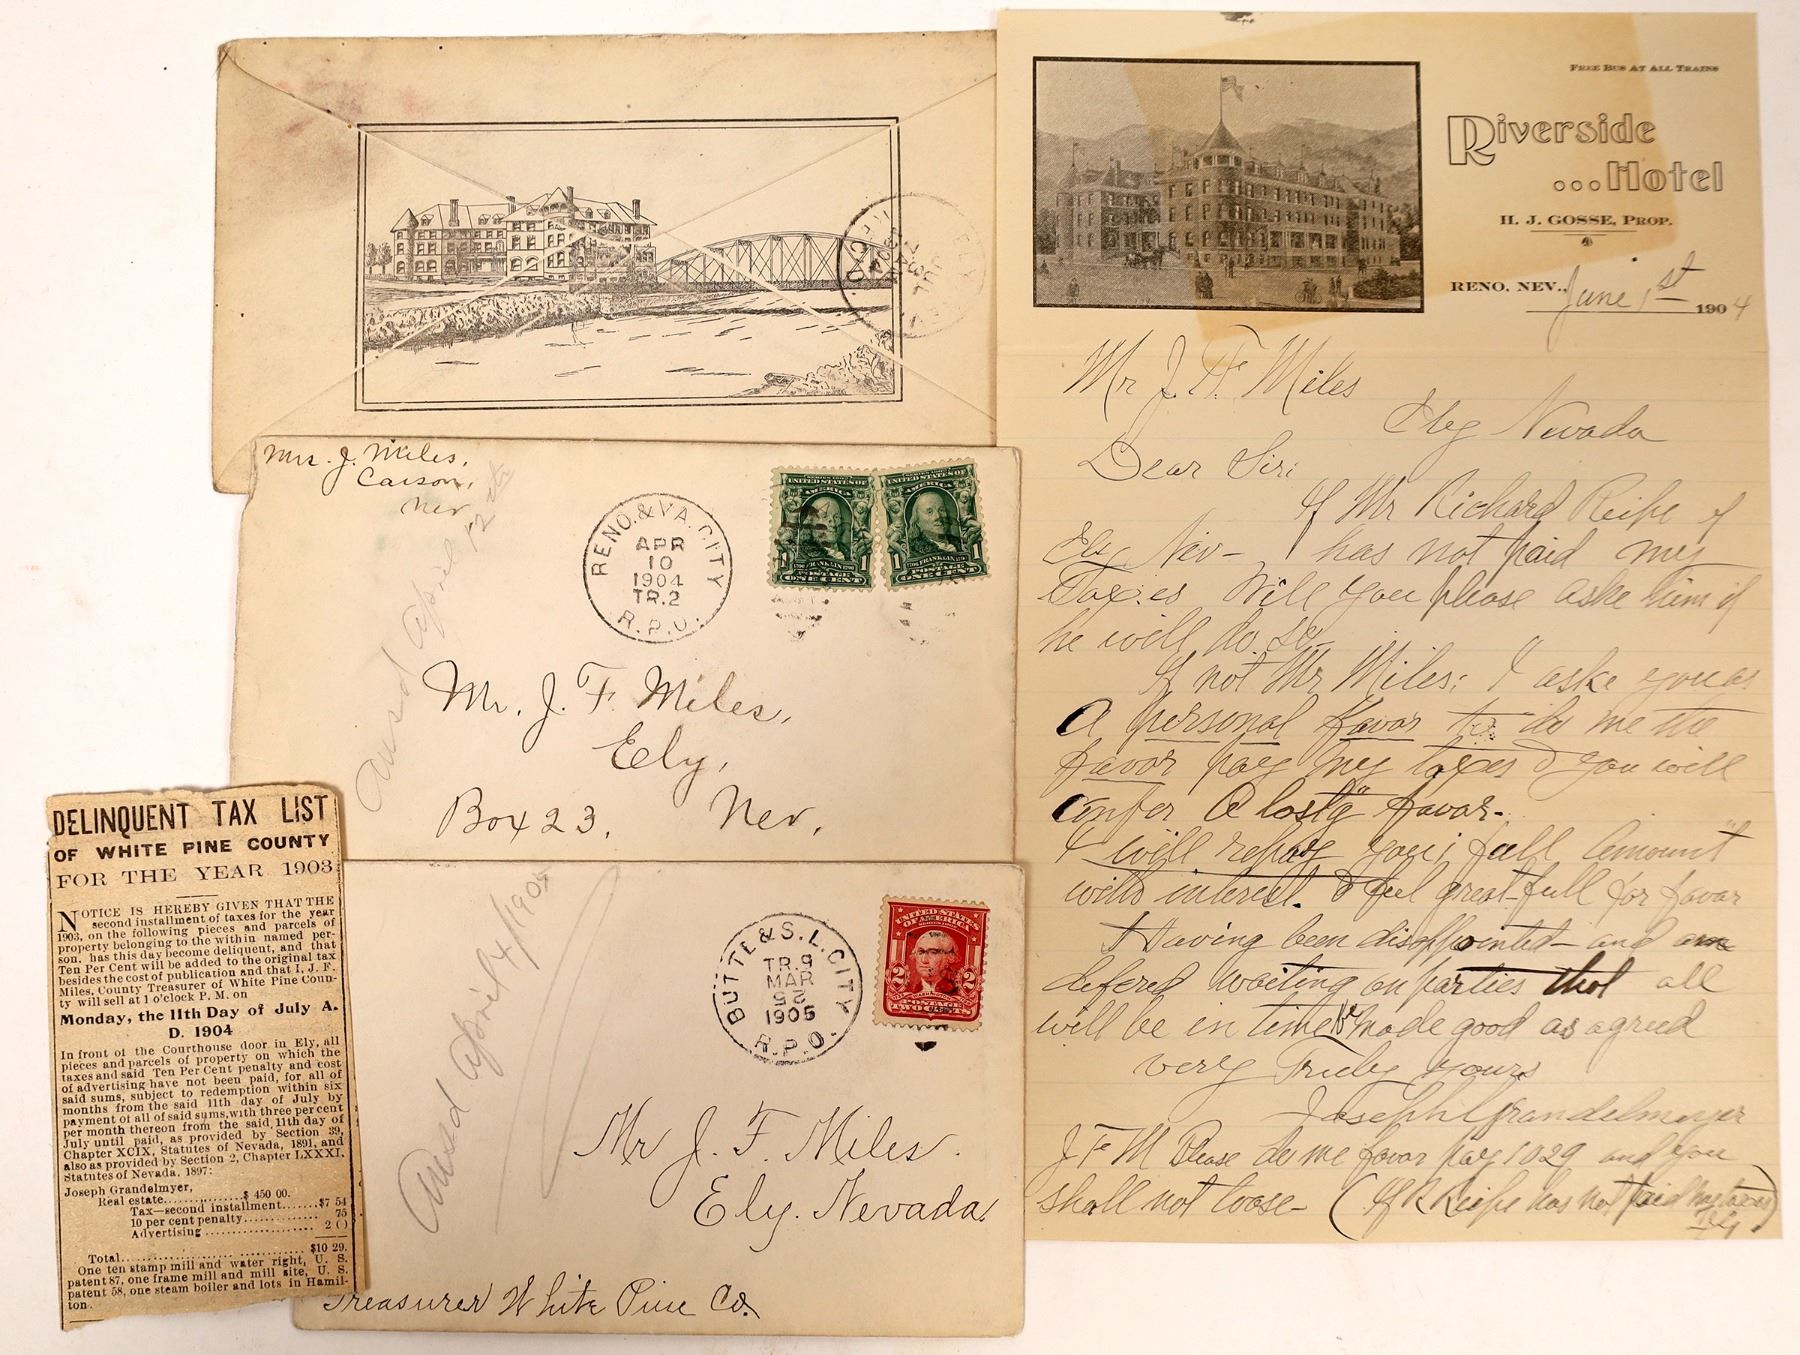 Mrs. J. Miles,
Carson,
Nev
Ansd April 12th
RENO. & VA. CITY
APR
10
1904
TR.2
R.P.O.
UNITED STATES OF
AMERICA
1 FRANKLIN 1
POSTAGE
ONE CENT
UNITED STATES OF
AMERICA
1 FRANKLIN 1
POSTAGE
ONE CENT
Mr. J. F. Miles,
Ely,
Box 23, Nev,
Ansd April 4/1905
BUTTE & S. L. CITY
TR.9
MAR
1905
R.P.O.
UNITED STATES
OF AMERICA
2 2
POSTAGE
TWO CENTS
Mr J. F. Miles.
Ely. Nevada.
Treasurer White Pine Co.
DELINQUENT TAX LIST
OF WHITE PINE COUNTY
FOR THE YEAR 1903
NOTICE IS HEREBY GIVEN THAT THE
second installment of taxes for the year
1903, on the following pieces and parcels of
property belonging to the within named per-
son, has this day become delinquent, and that
Ten Per Cent will be added to the original tax
besides the cost of publication and that I, J. F.
Miles, County Treasurer of White Pine Coun-
ty will sell at 1 o'clock P. M. on
Monday, the 11th Day of July A.
D. 1904
In front of the Courthouse door in Ely, all
pieces and parcels of property on which the
taxes and said Ten Per Cent penalty and cost
of advertising have not been paid, for all of
said sums, subject to redemption within six
months from the said 11th day of July by
payment of all of said sums, with three per cent
per month thereon from the said, 11th day of
July until paid, as provided by Section 39,
Chapter XCIX, Statutes of Nevada, 1891, and
also as provided by Section 2, Chapter LXXXI,
Statutes of Nevada, 1897:
Joseph Grandelmyer,
Real estate..............$ 450 00.
Tax—second installment......$7 54
10 per cent penalty............. 75
Advertising .................. 2 0
Total.......................... $10 29.
One ten stamp mill and water right, U. S.
patent 87, one frame mill and mill site, U. S.
patent 58, one steam boiler and lots in Hamil-
ton.
FREE BUS AT ALL TRAINS
Riverside
...Hotel
H. J. GOSSE, PROP.
RENO, NEV., June 1st 1904
Mr J. F. Miles
Ely Nevada
Dear Sir:
If Mr Richard Reipe of
Ely Nev- has not paid my
Taxes Will you please aske him if
he will do so
If not Mr Miles; I aske you as
A personal favor to do me the
favor pay my taxes & you will
confer A lastg favor-
I will repay you; full amount
with interest. & feel great-full for favor
I Having been disappointed- and am
defered waiting on parties that all
will be in time be made good as agreed
very Truly yours
Joseph Grandelmeyer
J F M Please do me favor pay 1029 and you
shall not loose- (If R Reipe has not paid my taxes)